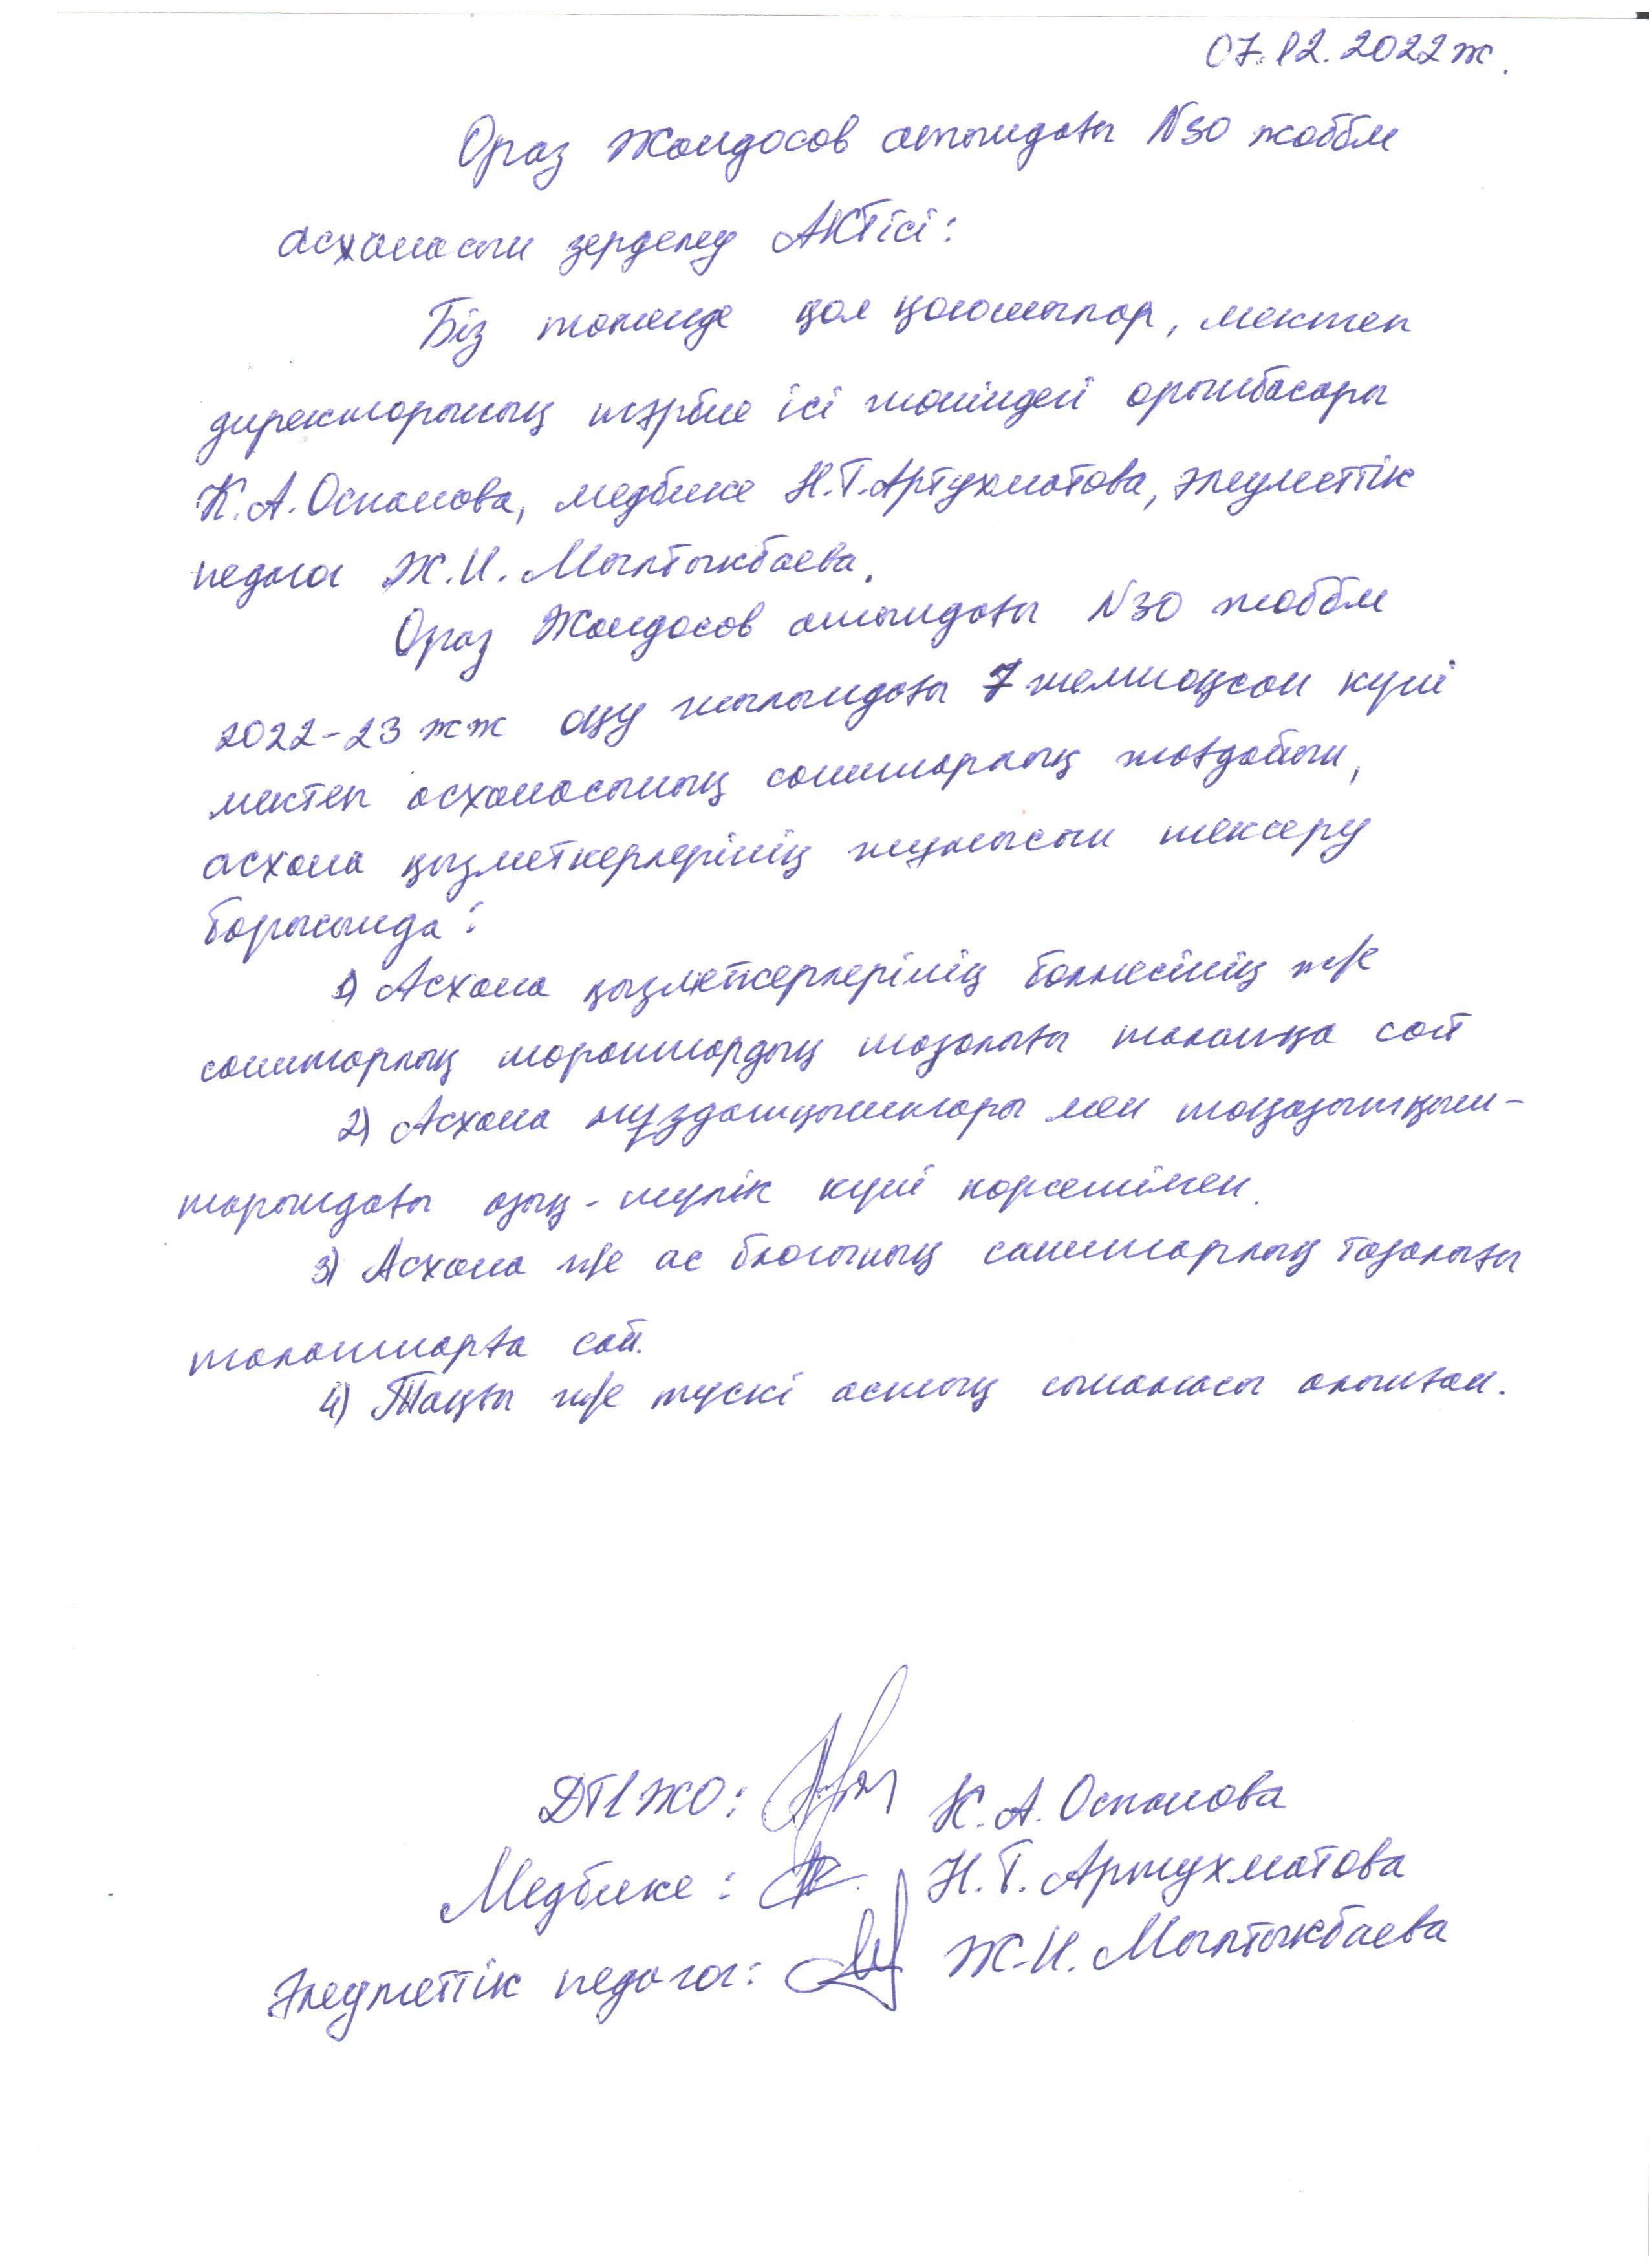 07.12.2022ж.
Ораз Жандосов атындағы N30 жоббм
асханасын зерделеу АКТісі:
Біз төменде қол қоюшылар, мектеп
директорының тәрбие ісі жөніндегі орынбасары
К.А.Оспанова, медбике Н.Т.Артухматова, әлеуметтік
педагог Ж.И.Мылтыкбаева.
Ораз Жандосов атындағы N30 жоббм
2022-23 жж оқу жылындағы 7 желтоқсан күні
мектеп асханасының санитарлық жағдайын,
асхана қызметкерлерінің жұмысын тексеру
барысында:
1) Асхана қызметкерлерінің бөлмесінің ж/е
санитарлық тораптардың тазалығы талапқа сай
2) Асхана мұздатқыштары мен тоңазытқыш-
тарындағы азық-түлік күні көрсетілген.
3) Асхана ж/е ас блогының санитарлық тазалығы
талаптарға сай.
4) Таңғы ж/е түскі астың сынамасы алынған.
ДТІЖО: К.А.Оспанова
Медбике: Н.Т.Артухматова
Әлеуметтік педагог: Ж.И.Мылтыкбаева